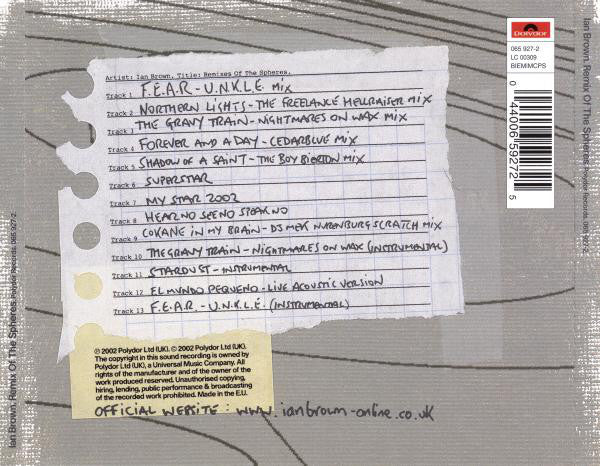 Artist: Ian Brown. Title: Remixes Of The Spheres.
Track 1 F.E.A.R - U.N.K.L.E. MIX
Track 2 NORTHERN LIGHTS - THE FREELANCE HELLRAISER MIX
Track 3 THE GRAVY TRAIN - NIGHTMARES ON WAX MIX
Track 4 FOREVER AND A DAY - CEDARBLUE MIX
Track 5 SHADOW OF A SAINT - THE BOY BIERTON MIX
Track 6 SUPERSTAR
Track 7 MY STAR 2002
Track 8 HEAR NO SEE NO SPEAK NO
Track 9 COKANE IN MY BRAIN - DJ MEK NURENBURG SCRATCH MIX
Track 10 THE GRAVY TRAIN - NIGHTMARES ON WAX (INSTRUMENTAL)
Track 11 STARDUST - INSTRUMENTAL
Track 12 EL MUNDO PEQUENO - LIVE ACOUSTIC VERSION
Track 13 F.E.A.R. - U.N.K.L.E. (INSTRUMENTAL)
℗ 2002 Polydor Ltd (UK). © 2002 Polydor Ltd (UK).
The copyright in this sound recording is owned by
Polydor Ltd (UK), a Universal Music Company. All
rights of the manufacturer and of the owner of the
work produced reserved. Unauthorised copying,
hiring, lending, public performance & broadcasting
of the recorded work prohibited. Made in the E.U.
OFFICIAL WEBSITE : www.ianbrown-online.co.uk
Polydor
065 927-2
LC 00309
BIEM/MCPS
0 44006 59272 5
Ian Brown. Remix Of The Spheres. Polydor Records. 065 927-2.
Ian Brown. Remix Of The Spheres. Polydor Records. 065 927-2.